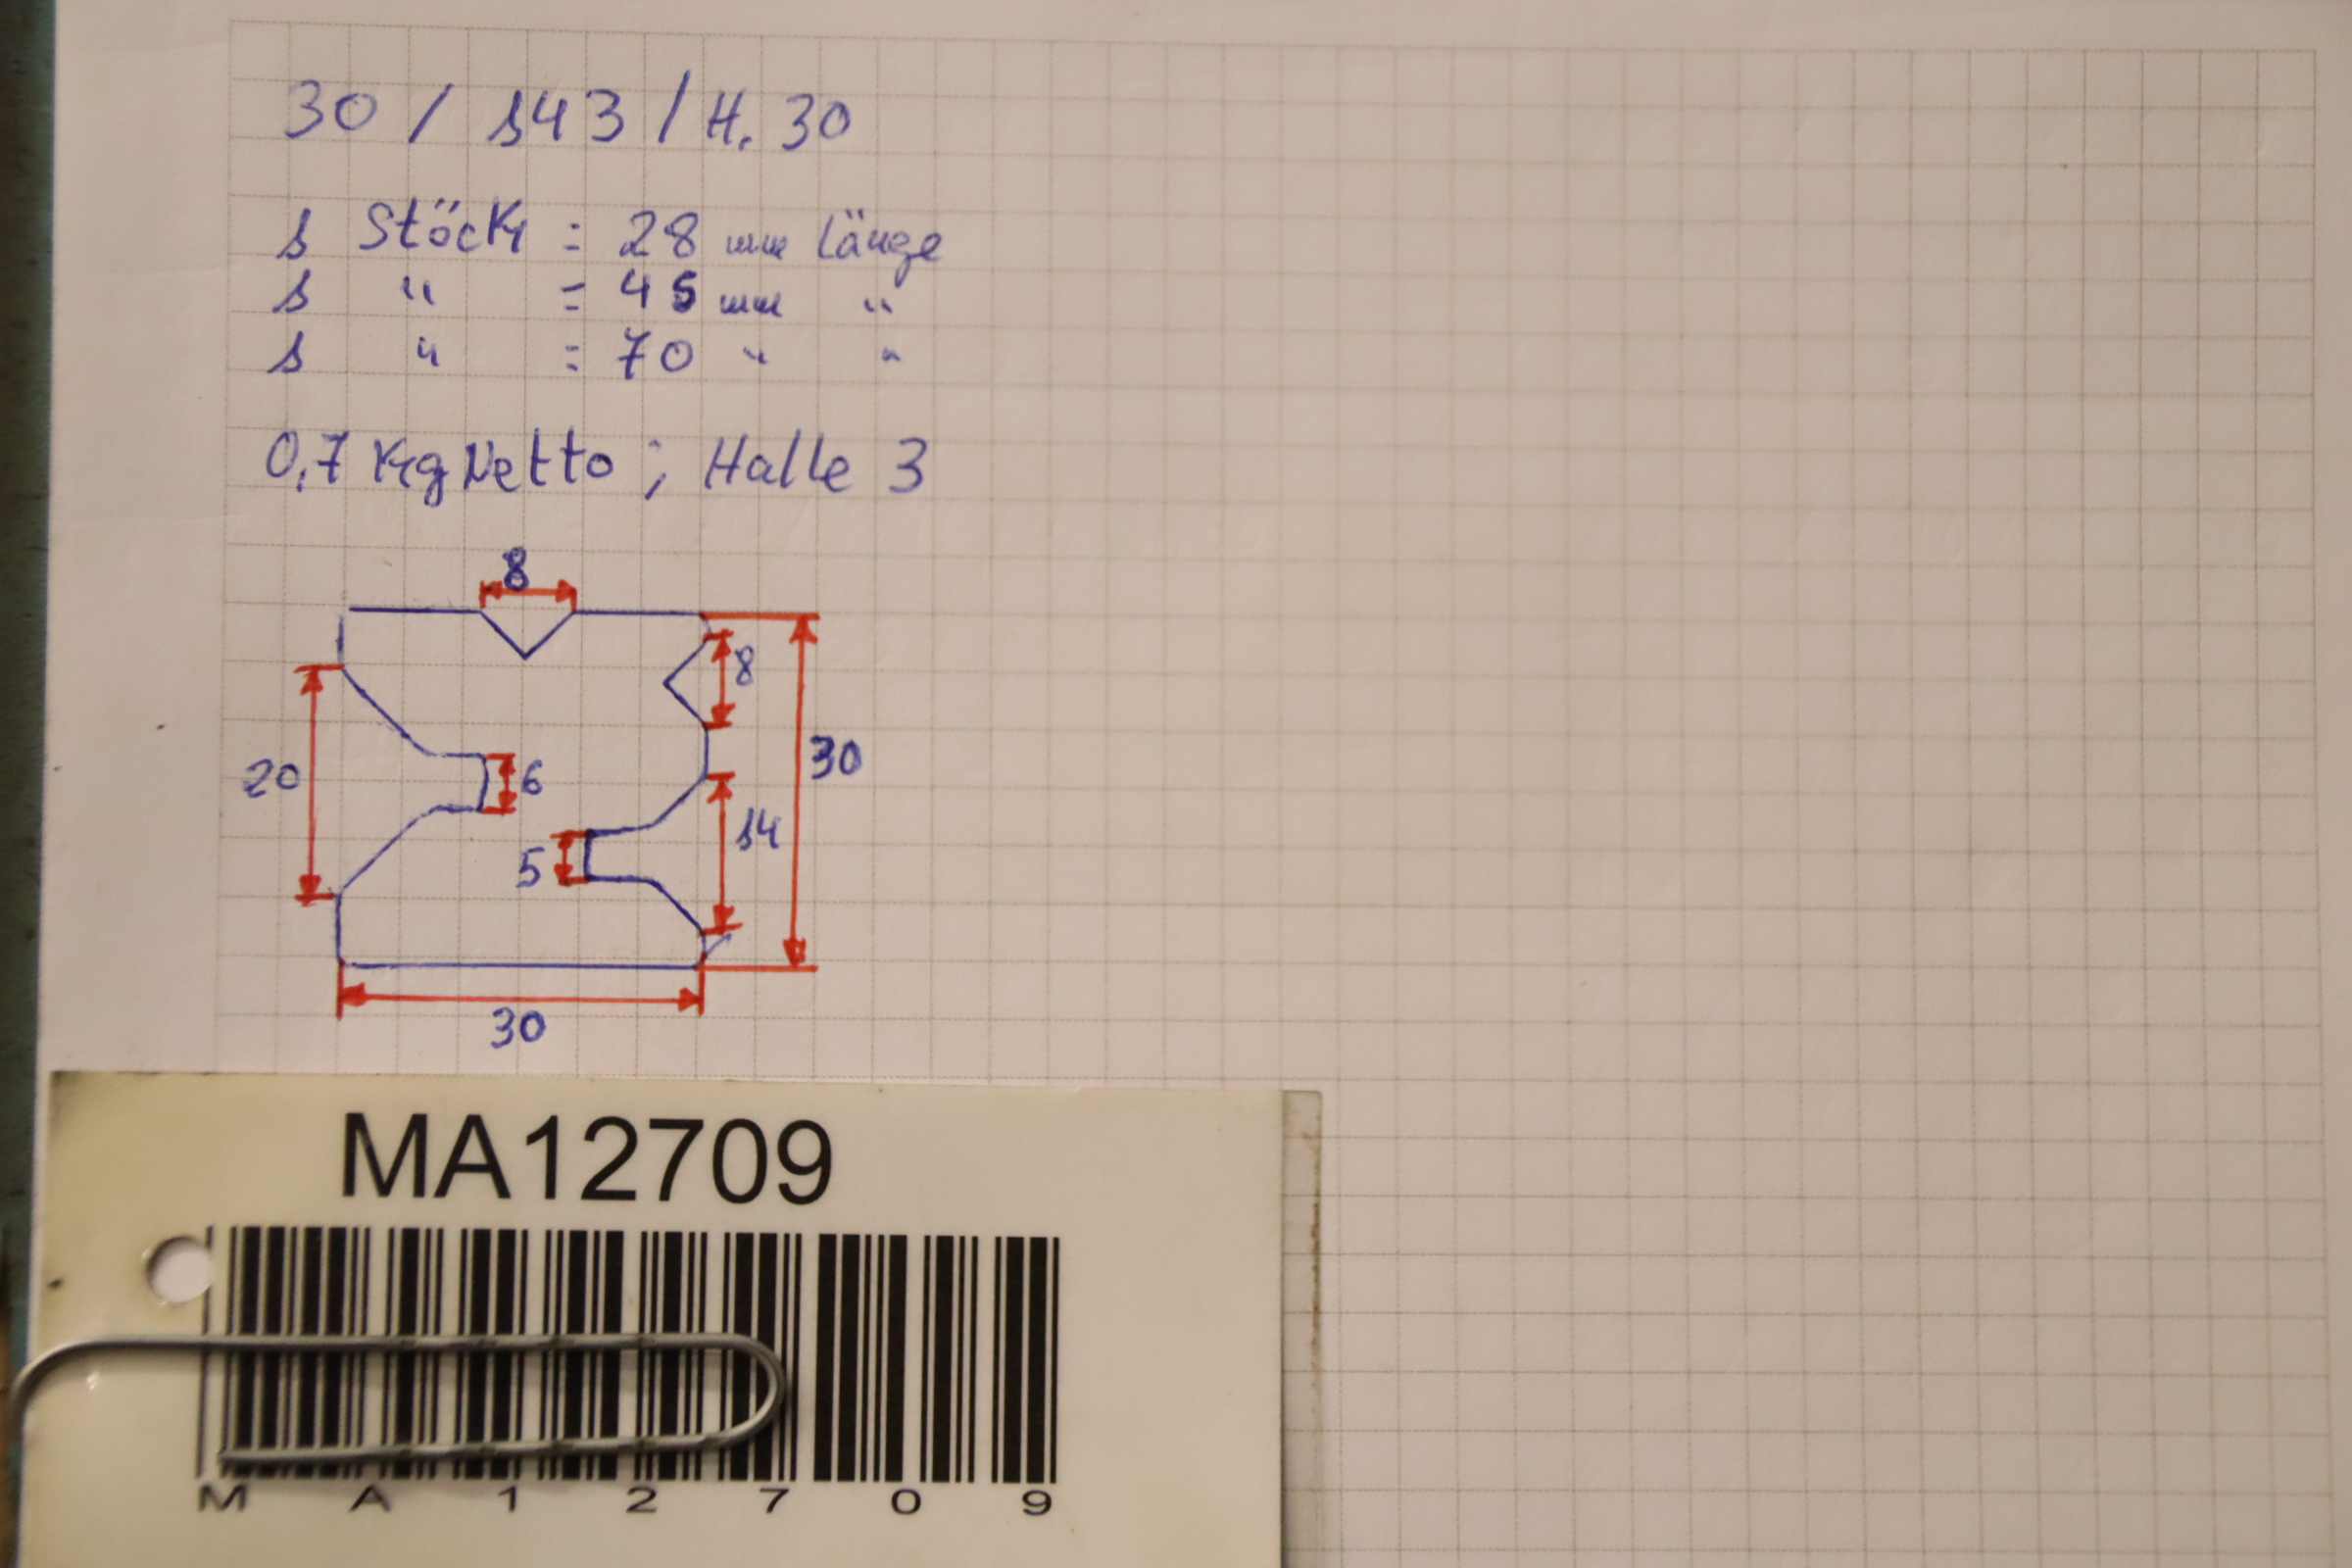 30 / 143 / H. 30
1 Stöck = 28 mm Länge
1 " = 45 mm "
1 " = 70 " "
0,7 Kg Netto ; Halle 3
8
8
30
20
6
14
5
30
MA12709
M A 1 2 7 0 9